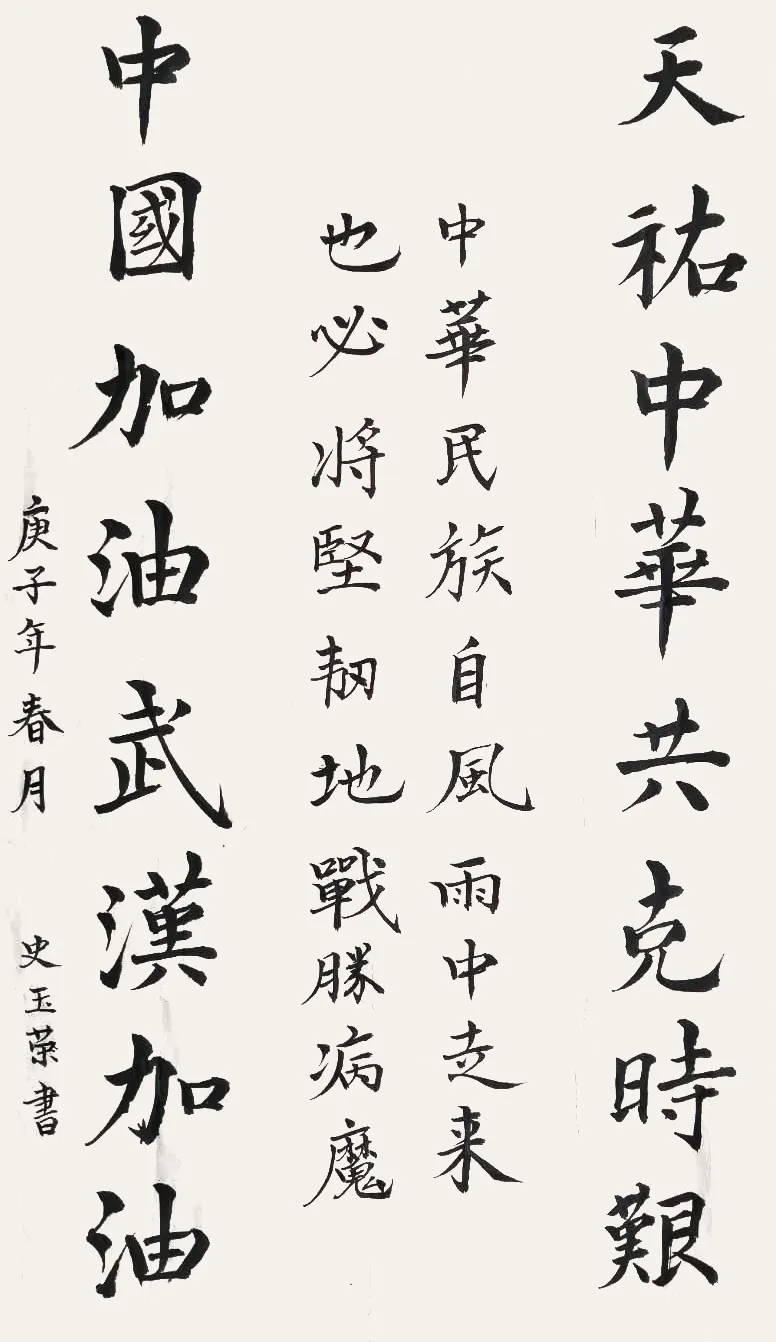 天祐中華共克時艱
中華民族自風雨中走来
也必将堅韧地戰勝病魔
中國加油武漢加油
庚子年春月
史玉荣書